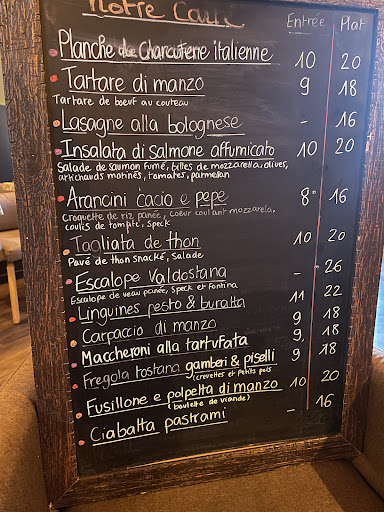 Notre Carte
Entrée Plat
Planche de Charcuterie italienne 10 20
Tartare di manzo 9 18
Tartare de boeuf au couteau
Lasagne alla bolognese - 16
Insalata di salmone affumicato 10 20
Salade de saumon fumé, billes de mozzarella, olives,
artichauds marinés, tomates, parmesan
Arancini cacio e pepe 8 16
Croquette de riz panée, coeur coulant mozzarela,
coulis de tomate, Speck
Tagliata de thon 10 20
Pavé de thon snacké, Salade
Escalope Valdostana - 26
Escalope de veau panée, Speck et Fontina
Linguines pesto & buratta 11 22
Carpaccio di manzo 9 18
Maccheroni alla tartufata 9 18
Fregola tostana gamberi & piselli 9 18
(crevettes et petits pois
Fusillone e polpetta di manzo 10 20
(boulette de viande)
Ciabatta pastrami - 16